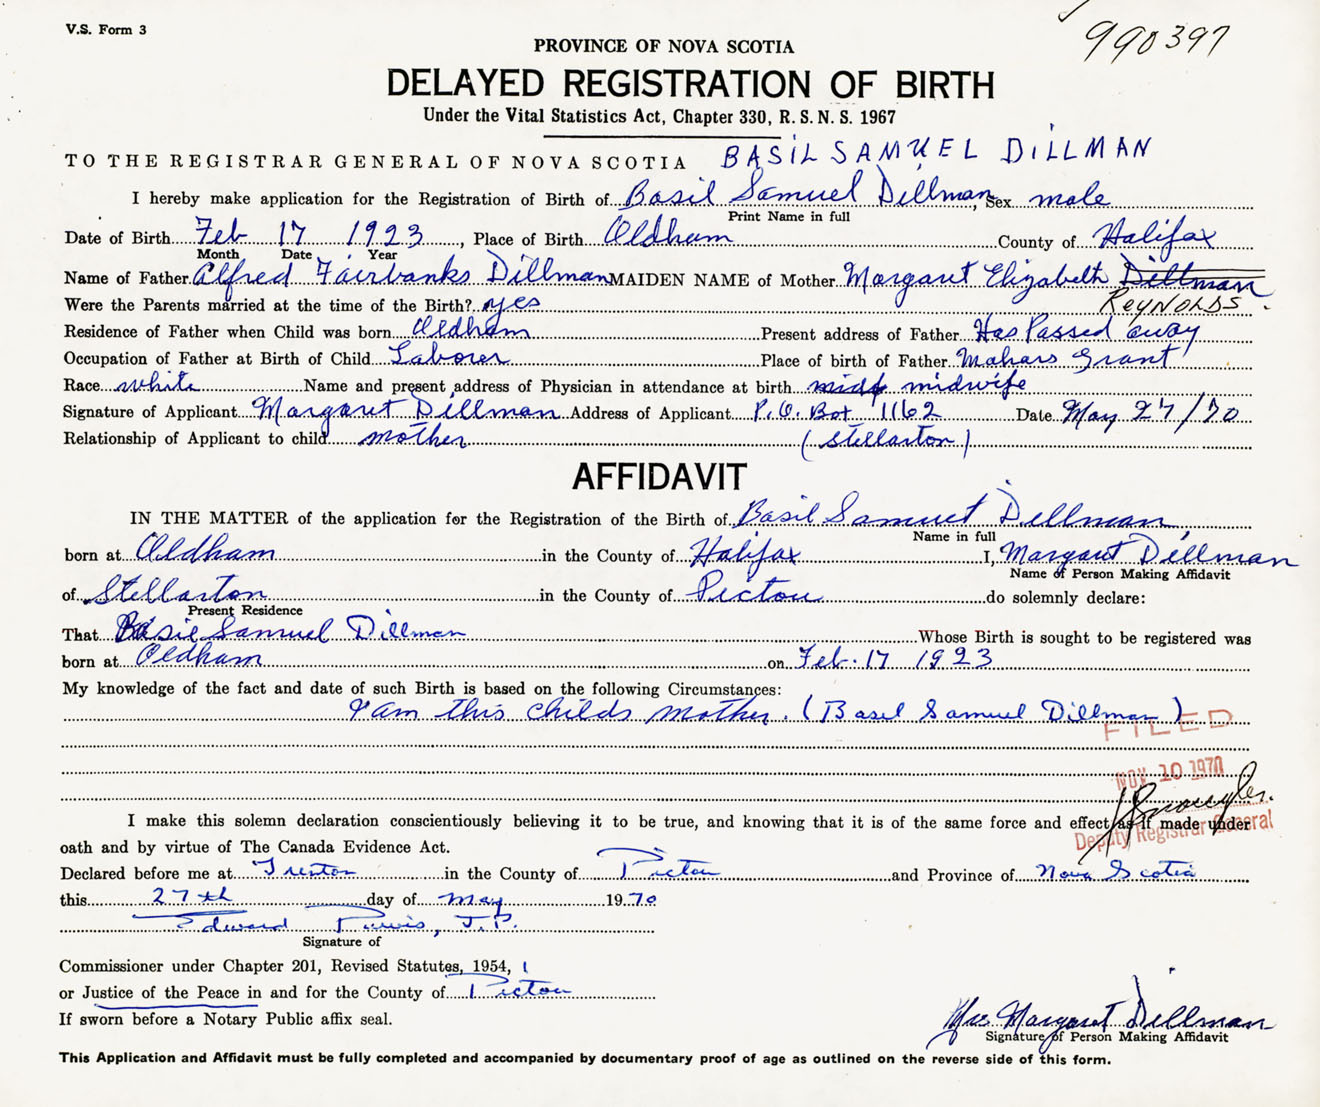 V.S. Form 3
990397
PROVINCE OF NOVA SCOTIA
DELAYED REGISTRATION OF BIRTH
Under the Vital Statistics Act, Chapter 330, R. S. N. S. 1967
TO THE REGISTRAR GENERAL OF NOVA SCOTIA BASIL SAMUEL DILLMAN
I hereby make application for the Registration of Birth of Basil Samuel Dillman, Sex male
Print Name in full
Date of Birth Feb 17 1923, Place of Birth Oldham County of Halifax
Month Date Year
Name of Father Alfred Fairbanks Dillman MAIDEN NAME of Mother Margaret Elizabeth Dillman
Were the Parents married at the time of the Birth? yes REYNOLDS
Residence of Father when Child was born Oldham Present address of Father Has Passed away
Occupation of Father at Birth of Child Laborer Place of birth of Father Mahars Grant
Race white Name and present address of Physician in attendance at birth midf midwife
Signature of Applicant Margaret Dillman Address of Applicant P.O. Box 1162 Date May 27/70
Relationship of Applicant to child mother (Stellarton)
AFFIDAVIT
IN THE MATTER of the application for the Registration of the Birth of Basil Samuel Dillman
Name in full
born at Oldham in the County of Halifax I, Margaret Dillman
Name of Person Making Affidavit
of Stellarton in the County of Pictou do solemnly declare:
Present Residence
That Basil Samuel Dillman Whose Birth is sought to be registered was
born at Oldham on Feb. 17 1923
My knowledge of the fact and date of such Birth is based on the following Circumstances:
I am this childs mother. (Basel Samuel Dillman)
FILED
NOV 10 1970
I make this solemn declaration conscientiously believing it to be true, and knowing that it is of the same force and effect as if made under
Deputy Registrar General
oath and by virtue of The Canada Evidence Act.
Declared before me at Trenton in the County of Pictou and Province of Nova Scotia
this 27th day of May 1970
Edward J.P.
Signature of
Commissioner under Chapter 201, Revised Statutes, 1954,
or Justice of the Peace in and for the County of Pictou
If sworn before a Notary Public affix seal.
Mrs Margaret Dillman
Signature of Person Making Affidavit
This Application and Affidavit must be fully completed and accompanied by documentary proof of age as outlined on the reverse side of this form.